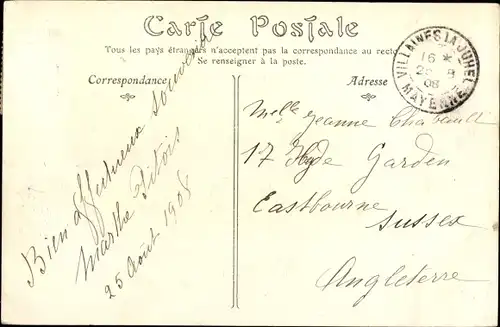 Carte Postale
Tous les pays étrangers n'acceptent pas la correspondance au recto
Se renseigner à la poste.
Correspondance
Adresse
VILLAINES LA JUHEL
16 *
08
MAYENNE
Bien affectueux souvenir
Marthe Pitois
25 Août 1908
Melle Jeanne Chabault
17 Hyde Garden
Eastbourne
Sussex
Angleterre